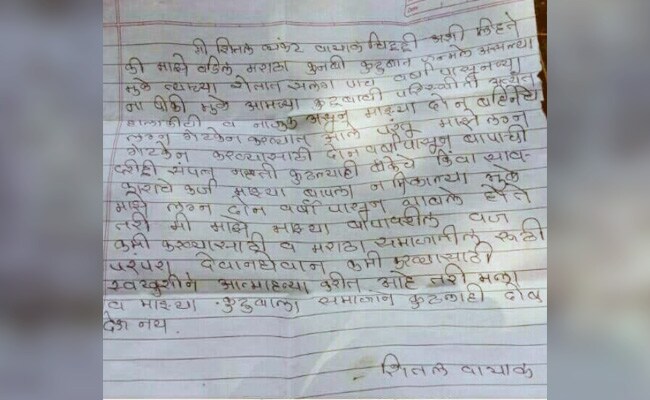 मी शितल व्यंकट वायाळ चिठ्ठी अशी लिहते
की माझे वडिल मराठा कुनबी कुटुबात जन्मले असल्या
मुळे त्याच्या शेतात सलग पाच वर्षा पासूनच्या
ना पिकी मुळे आमच्या कुटुबाची परिस्थीती अत्यंत
हालाकीची व नाजुक असून माझ्या दोन बहिनीचे
लग्न गेटकेन करण्यात आले परंतू माझे लग्न
गेटकेन करण्यासाठी दोन वर्षापासून बापाची
दलीद्री संपत नव्हती कुठल्याही बँकेचे किंवा साव-
काराचे कर्ज माझ्या बापाला न मिळाल्या मूळे
माझे लग्न दोन वर्षा पासून थांबले होते
तरी मी माझे माझ्या बापावरील वजन
कमी करण्यासाठी व मराठा समाजातील रूढी
परंपरा देवानघेवान कमी करण्यासाठी
स्वखुशीने आत्महत्या करीत आहे तरी मला
व माझ्या कुटुबाला समाजान कुठलाही दोष
देऊ नय.
शितल वायाळ